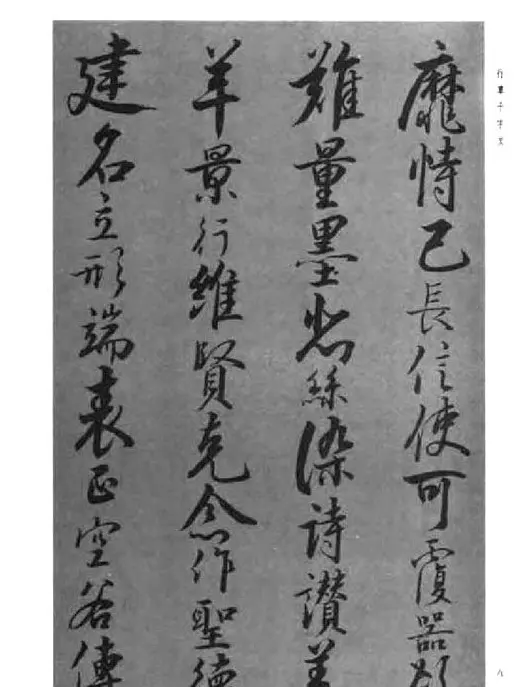 行草千字文
靡恃己長信使可覆器欲
難量墨悲絲染詩讚羔
羊景行維賢克念作聖德
建名立形端表正空谷傳
八